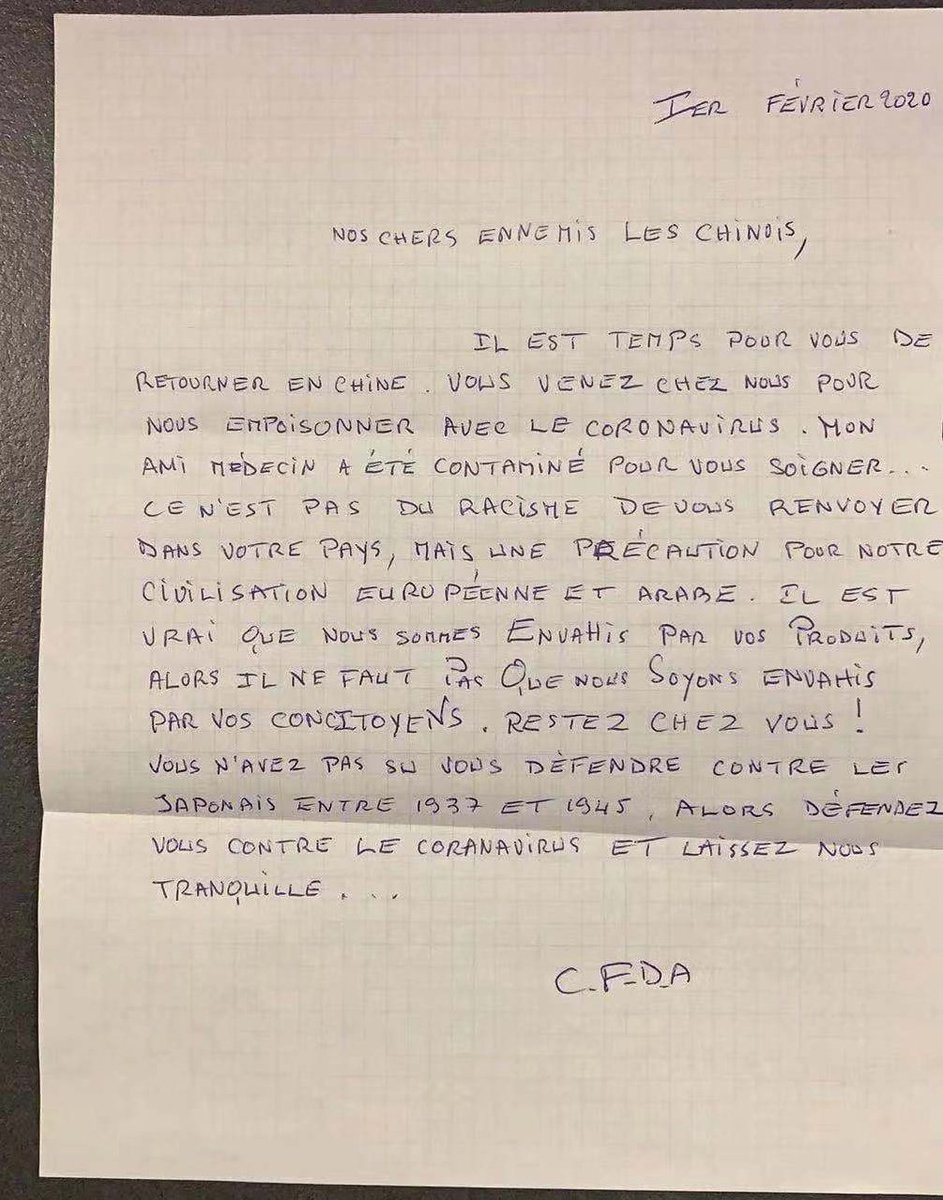 IER FÉVRIER 2020
NOS CHERS ENNEMIS LES CHINOIS,
IL EST TEMPS POUR VOUS DE
RETOURNER EN CHINE. VOUS VENEZ CHEZ NOUS POUR
NOUS EMPOISONNER AVEC LE CORONAVIRUS. MON
AMI MÉDECIN A ÉTÉ CONTAMINÉ POUR VOUS SOIGNER...
CE N'EST PAS DU RACISME DE VOUS RENVOYER
DANS VOTRE PAYS, MAIS UNE PRÉCAUTION POUR NOTRE
CIVILISATION EUROPÉENNE ET ARABE. IL EST
VRAI QUE NOUS SOMMES ENVAHIS PAR VOS PRODUITS,
ALORS IL NE FAUT PAS QUE NOUS SOYONS ENVAHIS
PAR VOS CONCITOYENS. RESTEZ CHEZ VOUS !
VOUS N'AVEZ PAS SU VOUS DÉFENDRE CONTRE LES
JAPONAIS ENTRE 1937 ET 1945, ALORS DÉFENDEZ
VOUS CONTRE LE CORANAVIRUS ET LAISSEZ NOUS
TRANQUILLE....
C.F-D.A